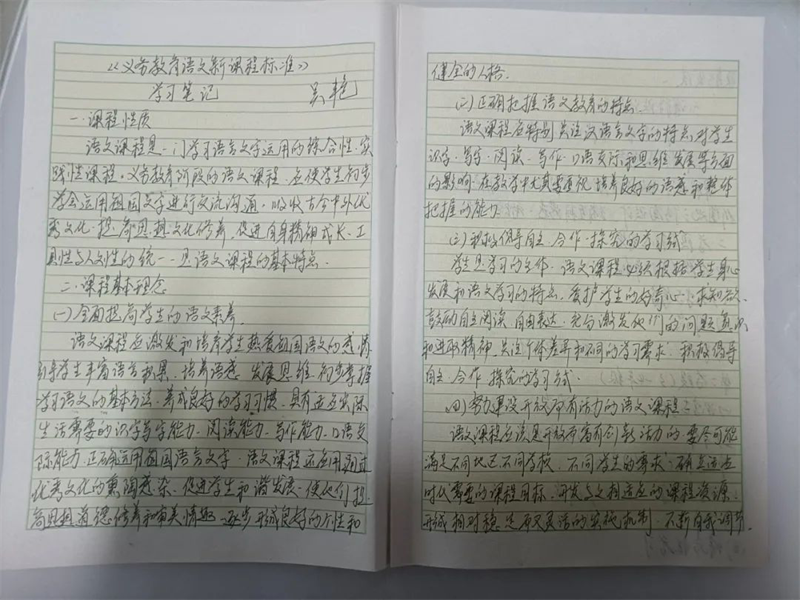 《义务教育语文新课程标准》
学习笔记 吴艳
一.课程性质
语文课程是一门学习语言文字运用的综合性.实
践性课程。义务教育阶段的语文课程,应使学生初步
学会运用祖国文字进行交流沟通,吸收古今中外优
秀文化.提高思想文化修养,促进自身精神成长.工
具性与人文性的统一.是语文课程的基本特点.
二.课程基本理念
(一)全面提高学生的语文素养.
语文课程应激发和培育学生热爱祖国语文的感情
引导学生丰富语言积累.培养语感.发展思维.初步掌握
学习语文的基本方法.养成良好的学习习惯.具有适应实际
生活需要的识字写字能力.阅读能力.写作能力.口语交
际能力.正确运用祖国语言文字.语文课程还应通过
优秀文化的熏陶感染.促进学生和谐发展.使他们提
高思想道德修养和审美情趣.逐步形成良好的个性和
健全的人格.
(二)正确把握语文教育的特点
语文课程应特别关注汉语言文字的特点对学生
识字.写字.阅读.写作.口语交际和思维发展等方面
的影响.在教学中尤其要重视培养良好的语感和整体
把握的能力.
(三)积极倡导自主.合作.探究的学习方式
学生是学习的主体.语文课程必须根据学生身心
发展和语文学习的特点.爱护学生的好奇心.求知欲.
鼓励自主阅读.自由表达.充分激发他们的问题意识
和进取精神.关注个体差异和不同的学习需求.积极倡导
自主.合作.探究的学习方式.
(四)努力建设开放而有活力的语文课程
语文课程应该是开放而富有创新活力的.要尽可能
满足不同地区不同学校.不同学生的需求.确立适应
时代需要的课程目标.开发与之相适应的课程资源.
形成相对稳定而又灵活的实施机制.不断自我调节